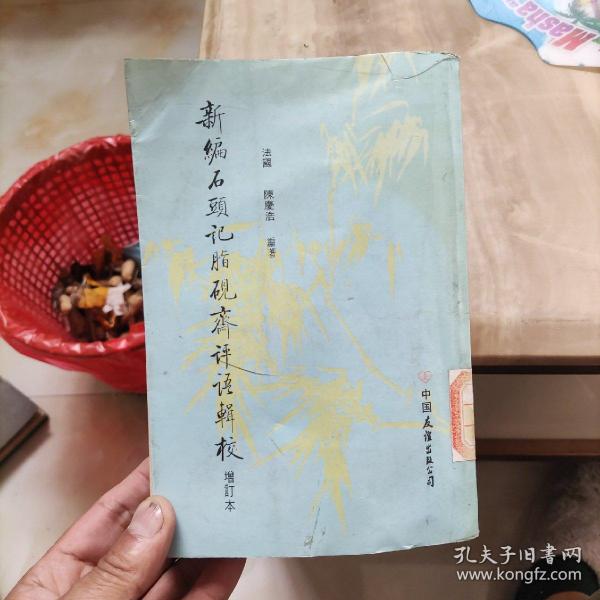 新編石頭記脂硯齋評語輯校
增訂本
法國 陳慶浩 編著
中国友谊出版公司
Masha
孔夫子旧书网
www.kongfz.com